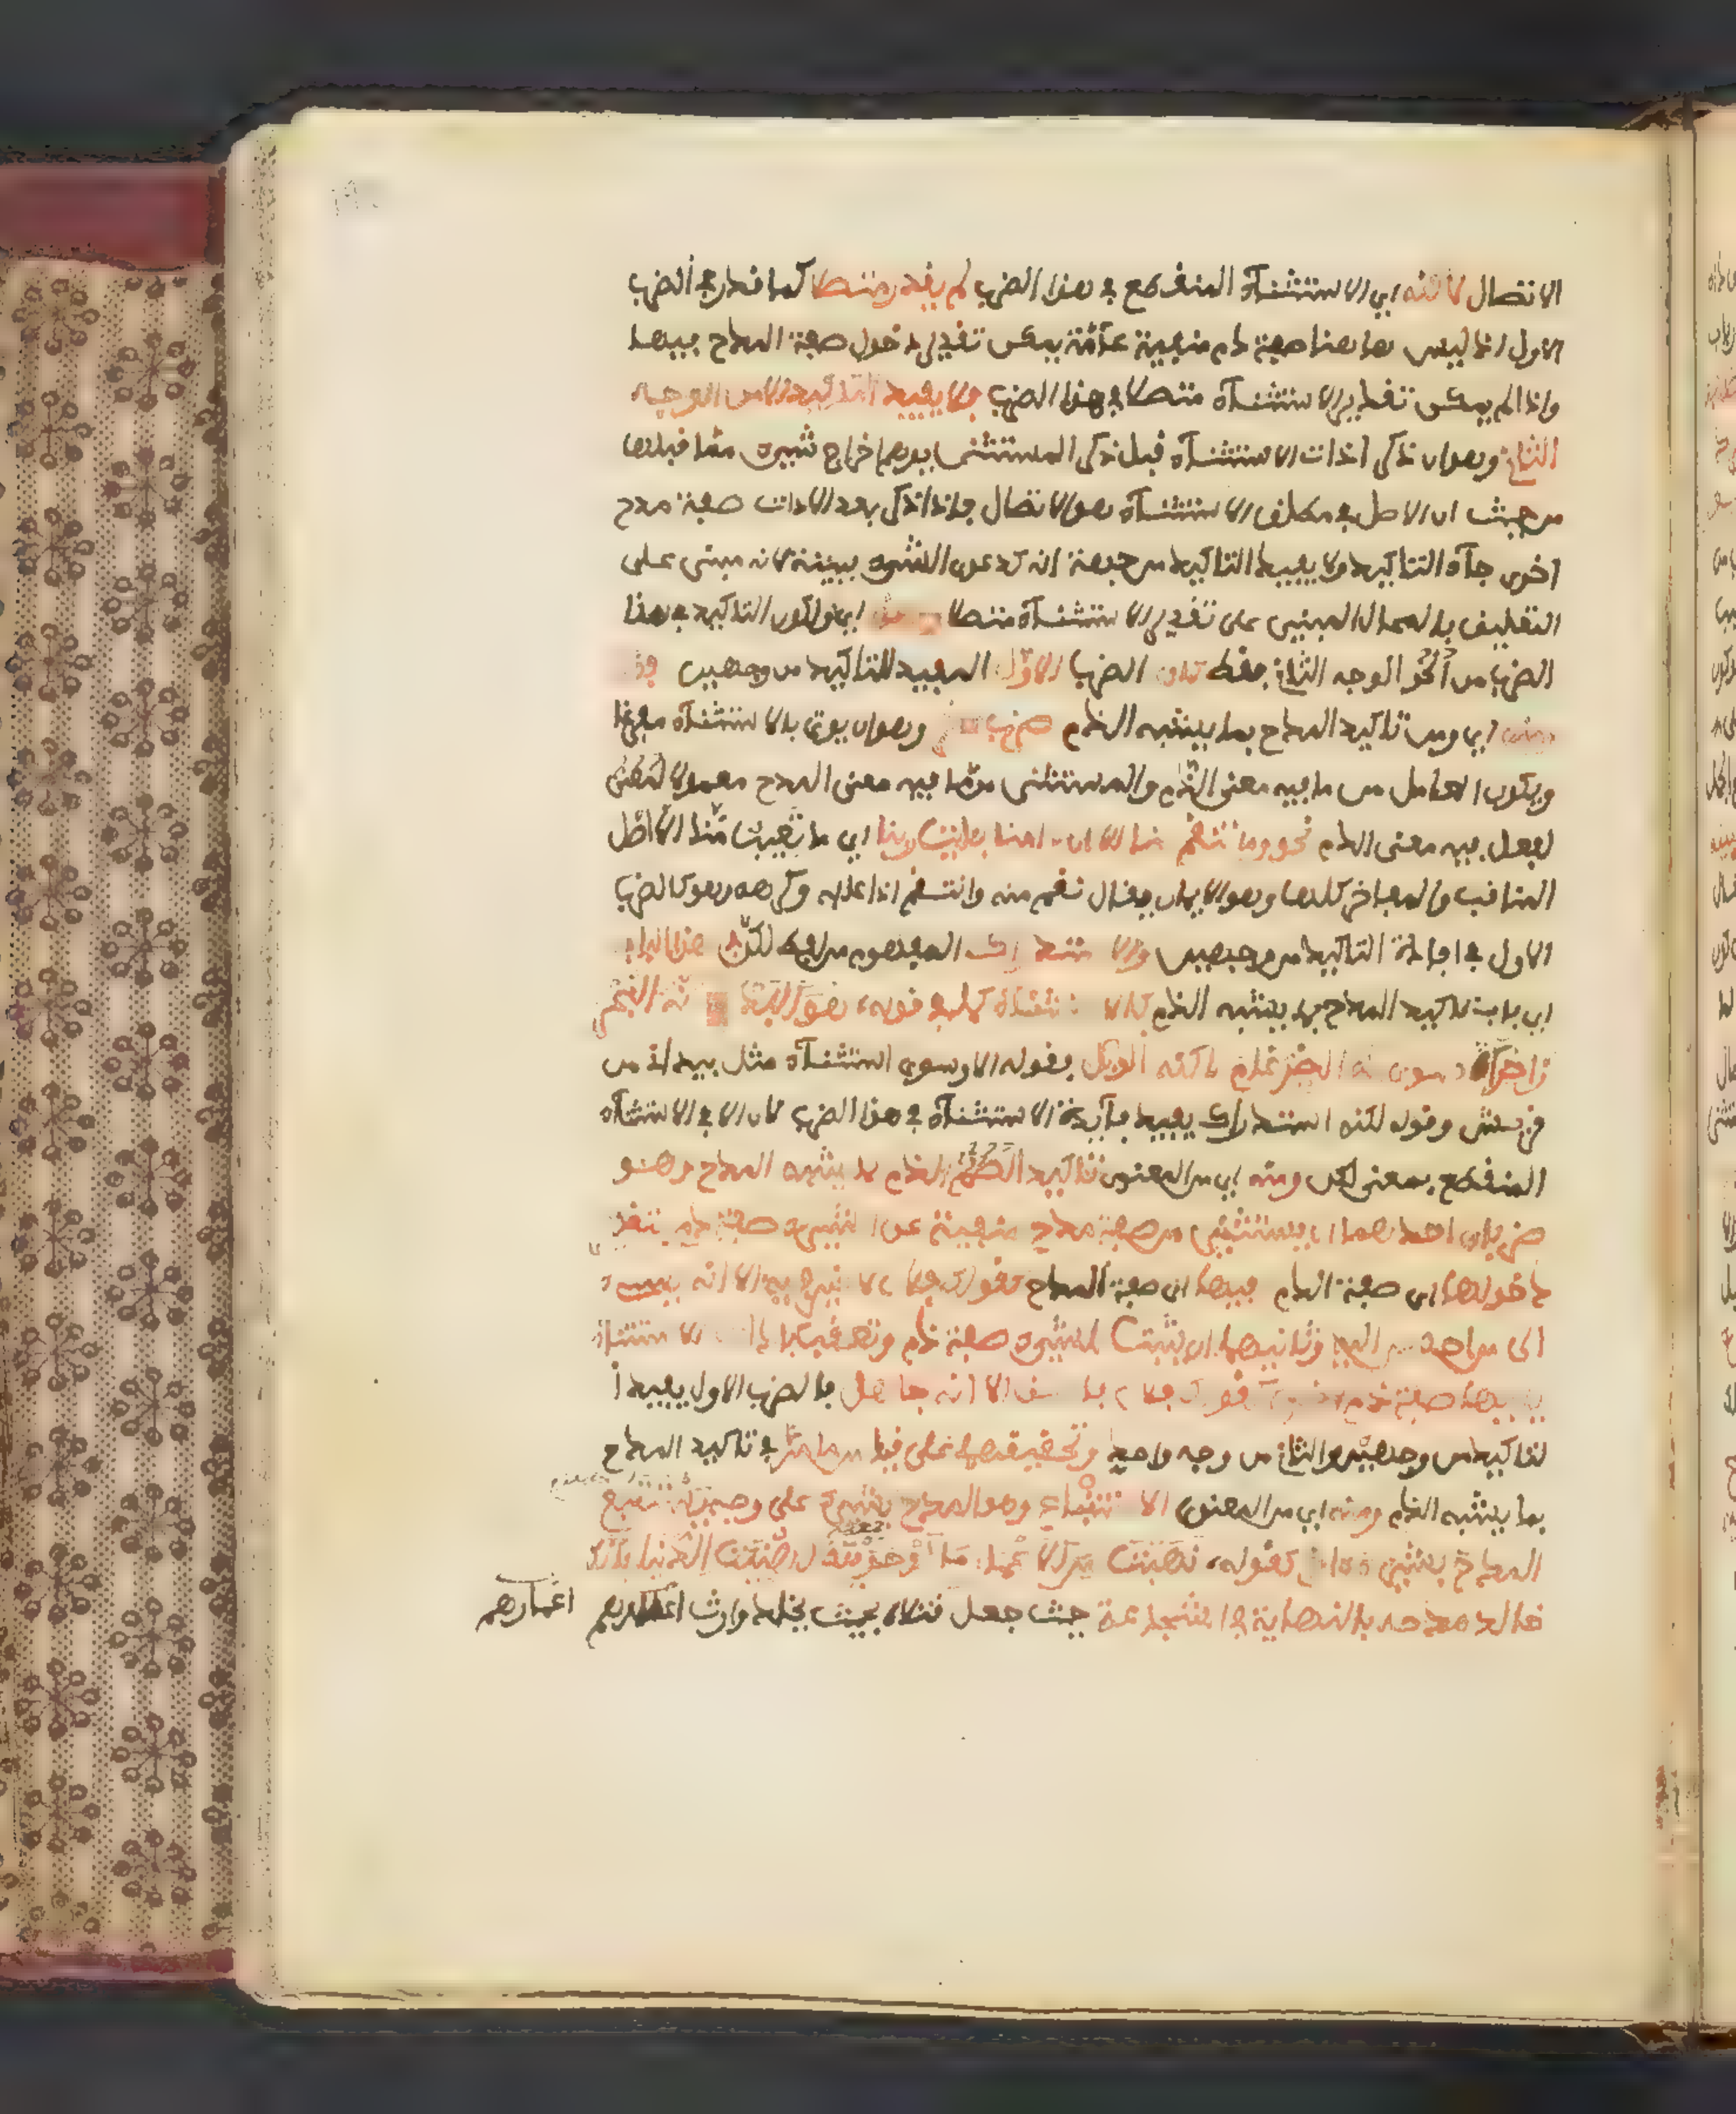 الاتصال لاكنه اي الاستثناء المنقطع في هذا الضرب لم يقدر متصلا كما قدر في الضرب
الاول اذ ليس هاهنا صفة ذم منفية عامة يمكن تقدير دخول صفة المدح فيها
واذا لم يمكن تقدير الاستثناء متصلا في هذا الضرب فلا يفيد التاكيد الا من الوجه
الثاني وهو ان ذكر اداة الاستثناء قبل ذكر المستثنى يوهم اخراج شيء مما قبلها
من حيث ان الاصل في مطلق الاستثناء هو الاتصال فاذا ذكر بعد الادات صفة مدح
اخرى جاء التاكيد ولا يفيد التاكيد من جهة انه كدعوى الشيء ببينة لانه مبني على
التعليق بالمحال المبني على تقدير الاستثناء متصلا اي ولكون التاكيد في هذا
الضرب من الوجه الثاني فقط كان الضرب الاول المفيد للتاكيد من وجهين
ومنه اي ومن تاكيد المدح بما يشبه الذم ضرب وهو ان يوتى بالاستثناء مفرغا
ويكون العامل من ما فيه معنى الذم والمستثنى مما فيه معنى المدح معمولا
لفعل فيه معنى الذم نحو وما تنقم منا الا ان امنا بايات ربنا اي ما تعيب منا الا اصل
المناقب والمفاخر كلها وهو الايمان يقال نقم منه وانتقم اذا عابه وكرهه وهو كالضرب
الاول في افادة التاكيد من وجهين والاستدراك المفهوم من لفظ لكن في هذا الباب
اي باب تاكيد المدح بما يشبه الذم كالاستثناء كما في قوله هو البدر الا انه البحر
زاخرا سوى انه الضرغام لاكنه الوبل فقوله الا وسوى استثناء مثل بيد اني من
قريش وقوله لكنه استدراك يفيد فائدة الاستثناء في هذا الضرب لان الا في الاستثناء
المنقطع بمعنى لكن ومنه اي من المعنوي تاكيد الذم بما يشبه المدح وهو
ضربان احدهما ان يستثنى من صفة مدح منفية عن الشيء صفة ذم بتقدير
دخولها اي صفة الذم فيها اي صفة المدح كقولك فلان لا خير فيه الا انه يسيء
الى من احسن اليه وثانيهما ان يثبت للشيء صفة ذم وتعقب باداة الاستثناء
يليها صفة ذم اخرى كقولك فلان فاسق الا انه جاهل فالضرب الاول يفيد
التاكيد من وجهين والثاني من وجه واحد وتحقيقهما على قياس ما مر في تاكيد المدح
بما يشبه الذم ومنه اي من المعنوي الاستتباع وهو المدح بشيء على وجه يستتبع
المدح بشيء اخر كقوله نهبت من الاعمار ما لو حويته لهنئت الدنيا بانك
خالد مدحه بالنهاية في الشجاعة حيث جعل قتلاه بحيث يخلد وارث اعمارهم اعمارهم